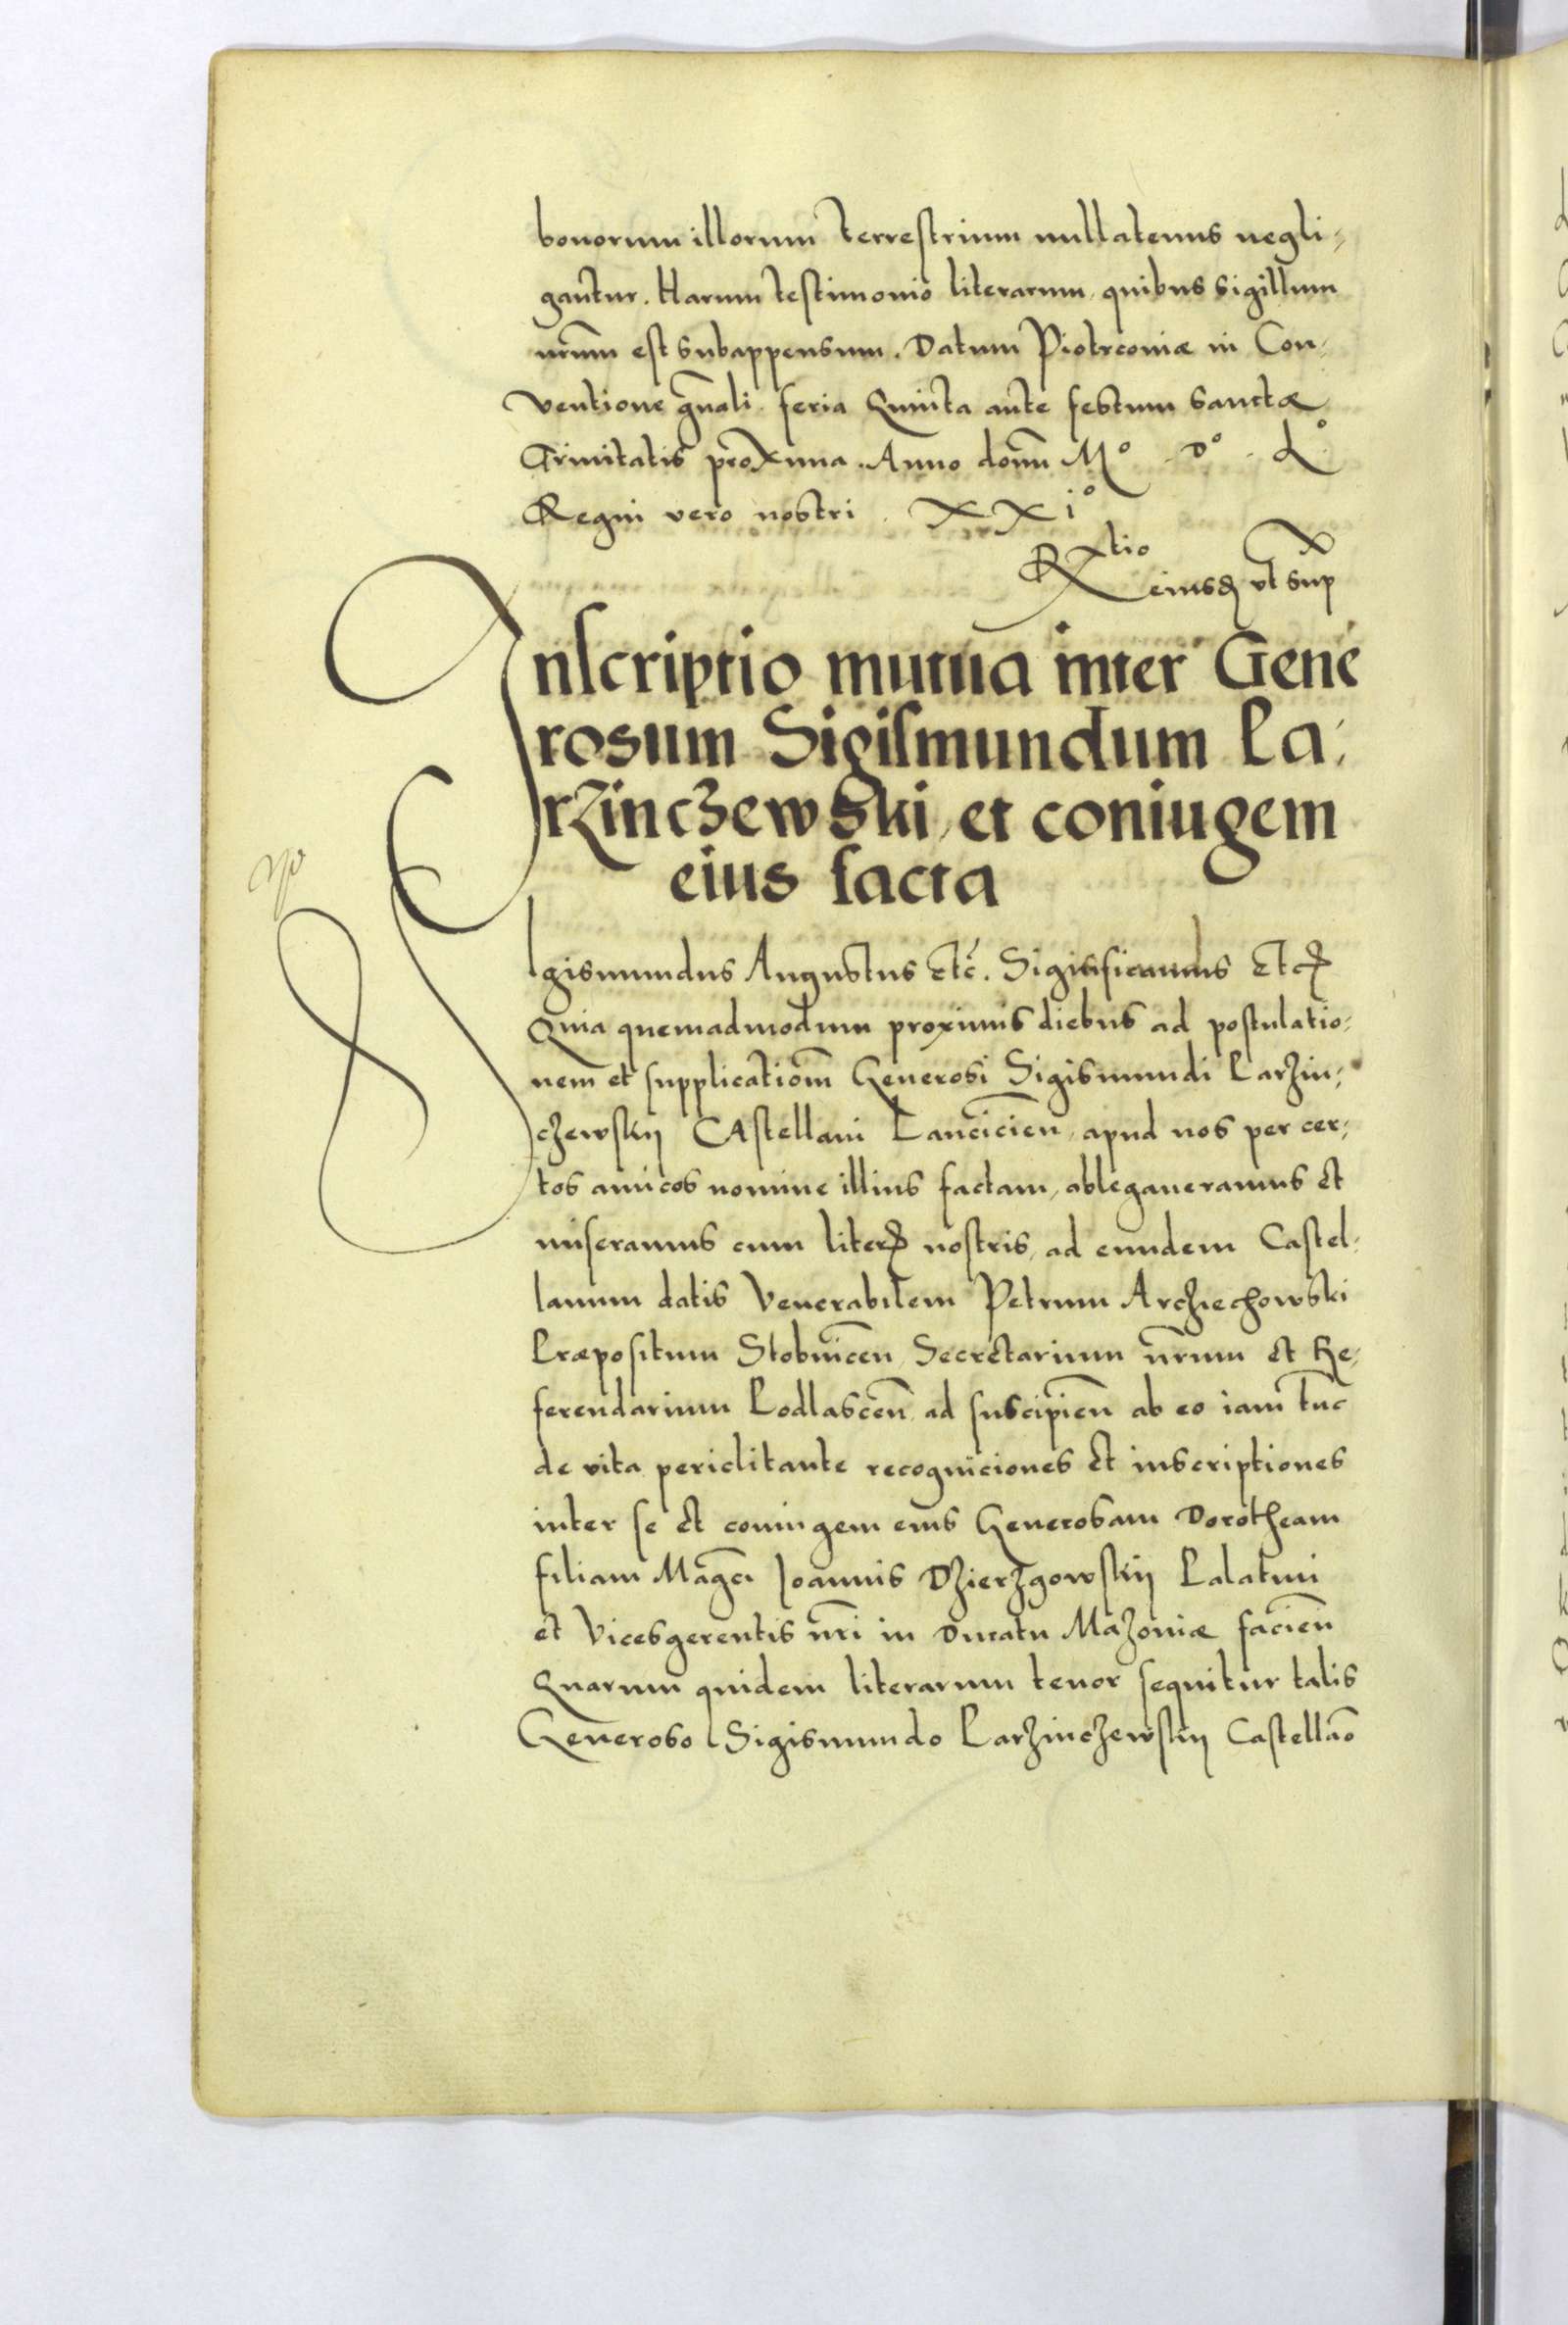 bonorum illorum terrestrium nullatenus negli-
gantur. Harum testimonio literarum, quibus sigillum
nr̃um est subappensum. Datum Piotrconiæ in Con-
ventione gñali. feria Quinta ante festum Sanctæ
Trinitatis proxima. Anno domi̅ M° D° L°
Regni vero nostri . XXi°
Rtio eiusdẽ ut sup
Inscriptio mutua inter Gene
rosum Sigismundum Pa-
rzinczewski, et coniugem
eius facta
Sigismundus Augustus etc̃. Significamus etc
Quia quemadmodum proximis diebus ad postulatio-
nem et supplicatiom̃ Generosi Sigismundi Parzin-
czewskij Castellani Lancicien̄, apud nos per cer-
tos amicos nomine illius factam, ablegaveramus et
miseramus cum literis nostris, ad eundem Castel-
lanum datis Venerabilem Petrum Arcziechowski
Præpositum Stobnicen̄, Secretarium nr̃um et Re-
ferendarium Podlascen̄, ad suscipien̄ ab eo iam tunc
de vita periclitante recogniciones et inscriptiones
inter se et coniugem eius Generosam Dorotheam
filiam Magci Joannis Dzierzgowskij Palatini
et Vicesgerentis nr̃i in Ducatu Mazoviæ facien̄
Quarum quidem literarum tenor sequitur talis
Generoso Sigismundo Parzinczewskij Castellão